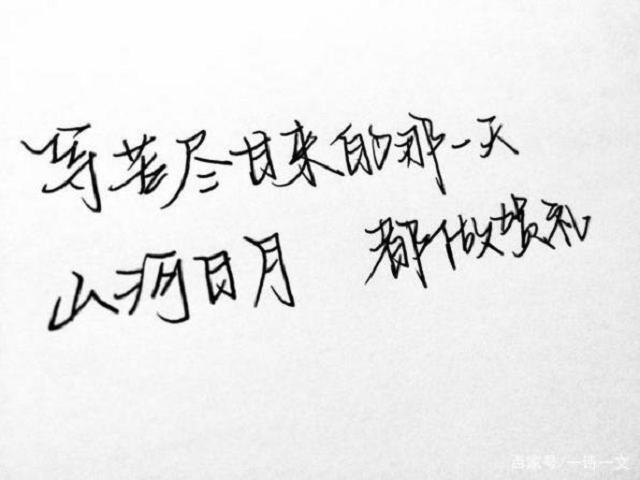 等苦尽甘来的那一天
山河日月 都做贺礼
百家号/一诗一文